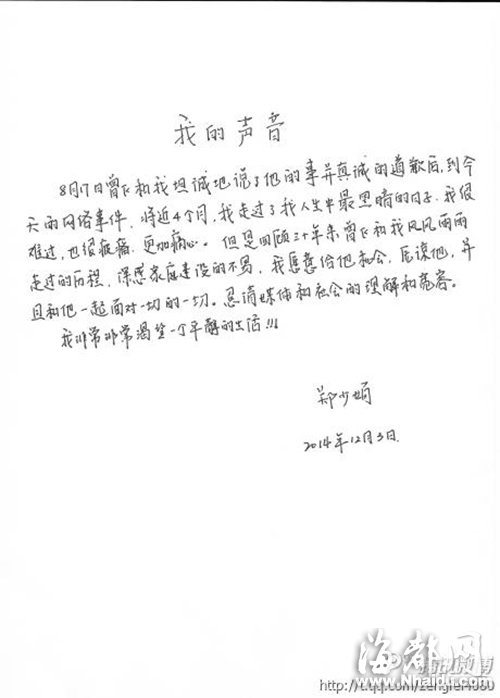 我的声音
8月17日曾飞和我坦诚地说了他的事并真诚的道歉后，到今
天的网络事件，将近4个月，我走过了我人生中最黑暗的日子，我很
难过，也很疲痛，更加痛心。但是回顾三十年来曾飞和我风风雨雨
走过的历程，深感家庭建设的不易，我愿意给他机会，原谅他，并
且和他一起面对一切的一切。恳请媒体和社会的理解和宽容。
我非常非常渴望一个平静的生活!!!
郑少娟
2014年12月3日
海都网
www.Nhaidu.com